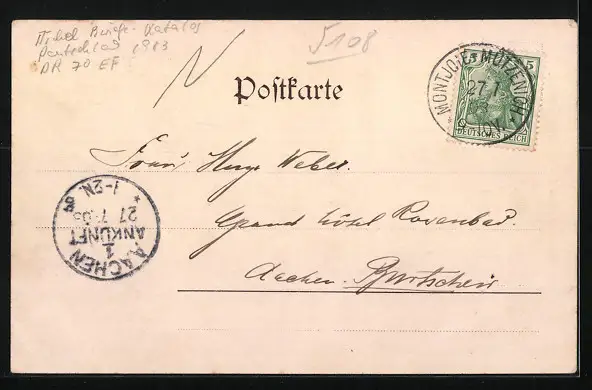 Michel Briefe-Katalog
Deutschland 1983
DR 70 EF
5108
Postkarte
MONTJOIE-MÜTZENICH
27.7.
5
DEUTSCHES REICH
Frau Hugo Weber.
Grand hôtel Rosenbad.
Aachen. Burtscheid
AACHEN
1
ANKUNFT
27.7.03
1-2N.